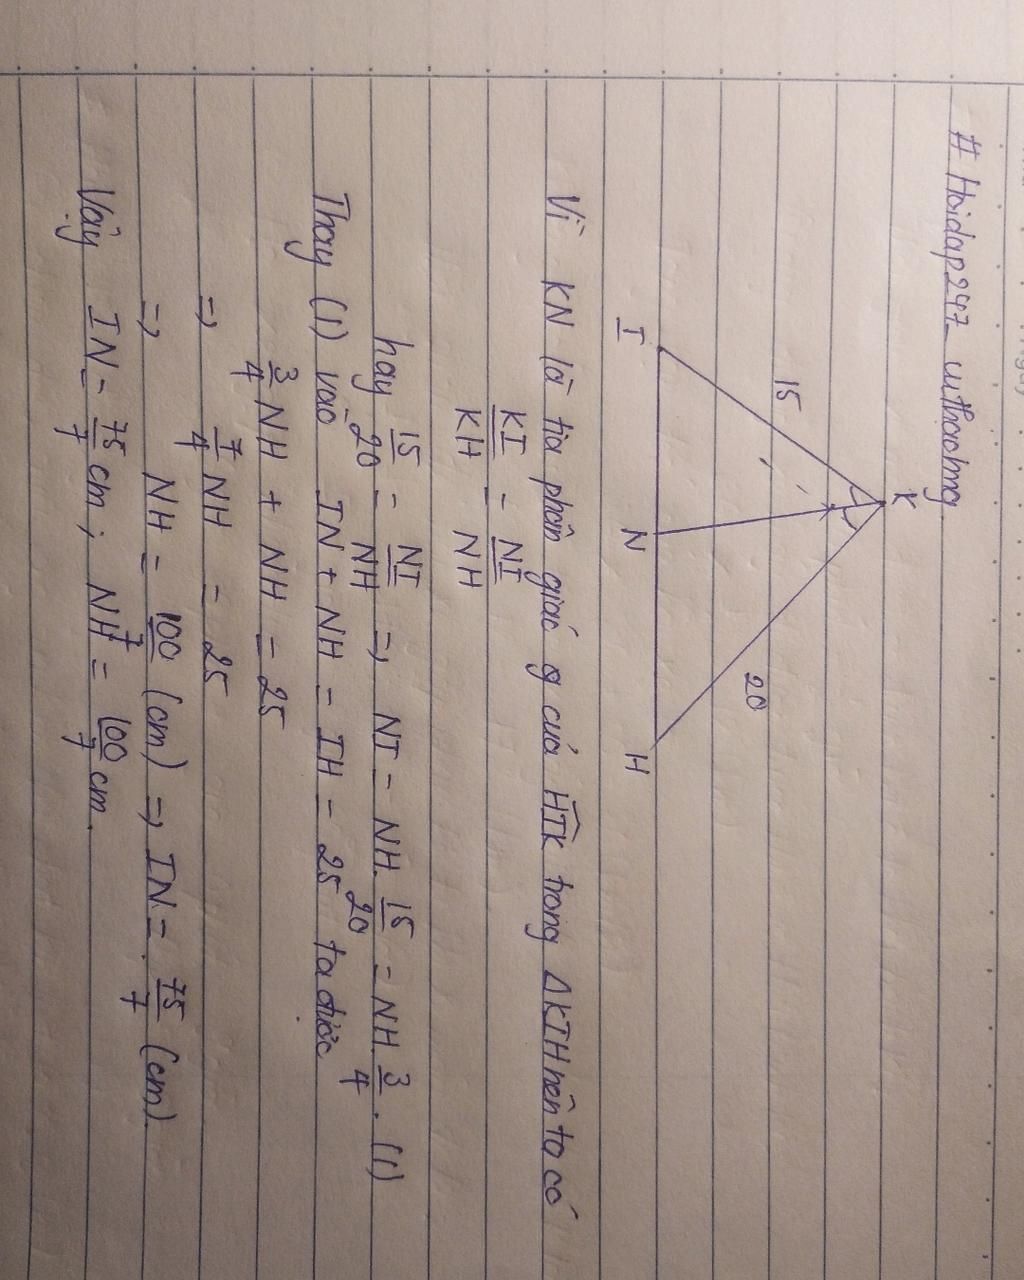 # Hoidap247_withaotng
K
15
20
I
N
H
Vì KN là tia phân giác g của HIK trong ΔKIH nên ta có
KI/KH = NI/NH
hay 15/20 = NI/NH => NI = NH. 15/20 = NH. 3/4. (1)
Thay (1) vào IN + NH = IH = 25 ta được
3/4 NH + NH = 25
=> 7/4 NH = 25
=> NH = 100/7 (cm) => IN = 75/7 (cm).
Vậy IN = 75/7 cm; NH = 100/7 cm.